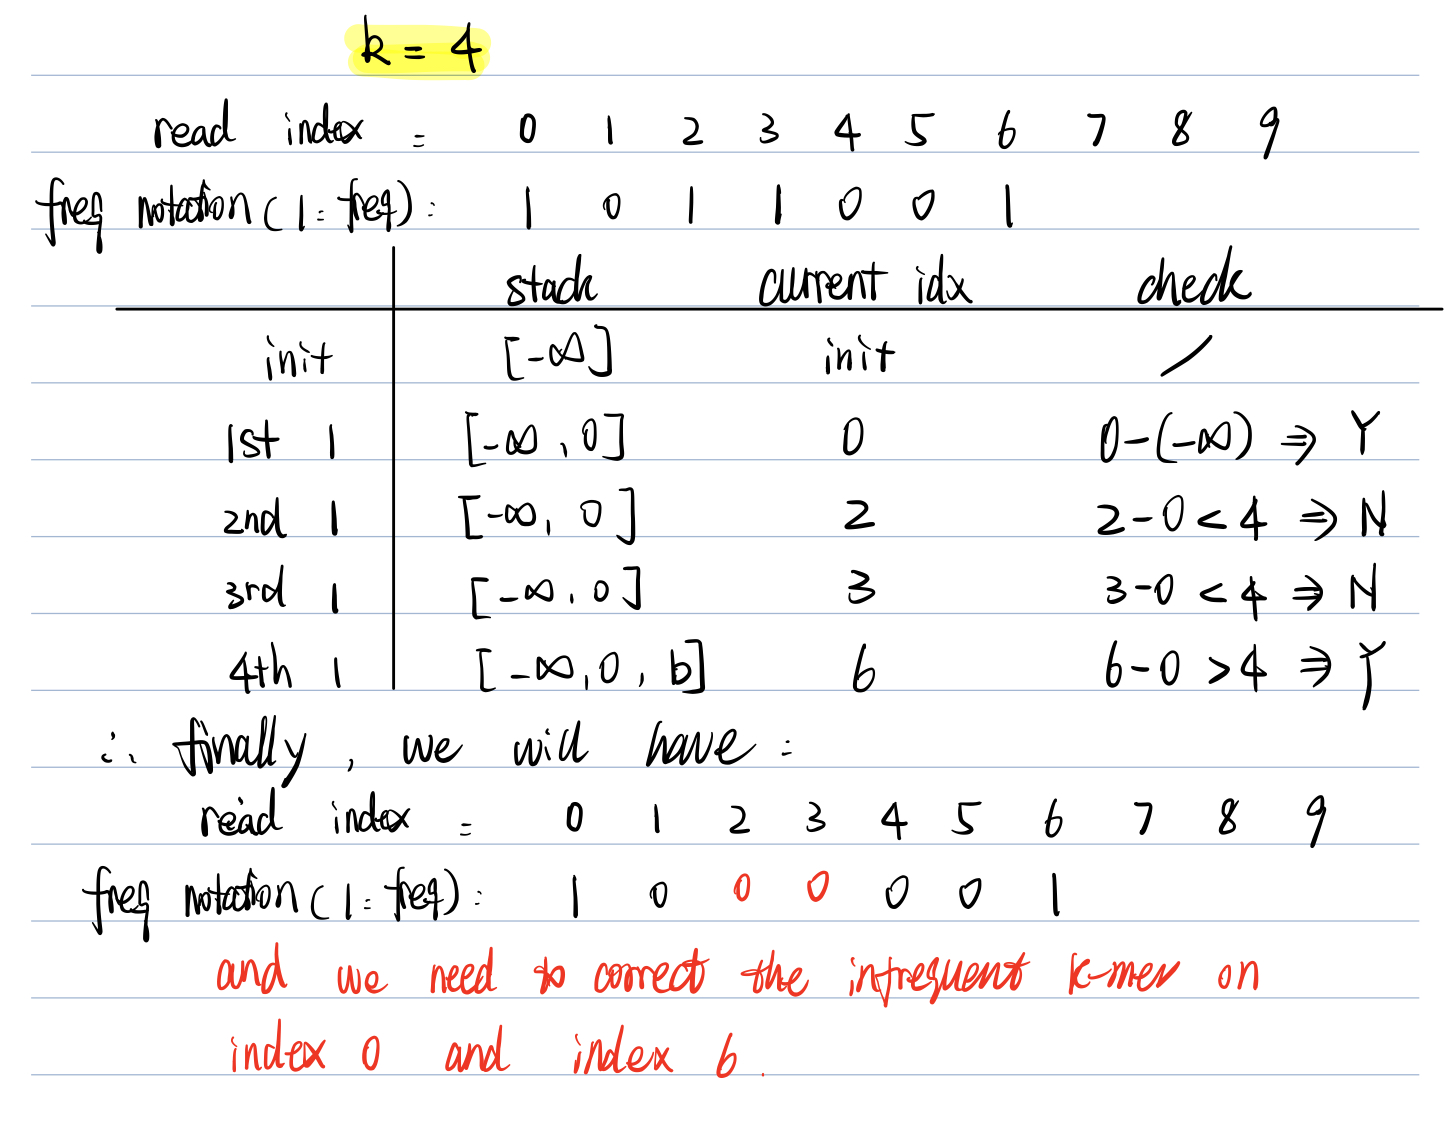 k = 4
read index = 0 1 2 3 4 5 6 7 8 9
freq notation (1 = freq) : 1 0 1 1 0 0 1
stack current idx check
init [-∞] init /
1st 1 [-∞, 0] 0 0-(-∞) ⇒ Y
2nd 1 [-∞, 0] 2 2-0 < 4 ⇒ N
3rd 1 [-∞, 0] 3 3-0 < 4 ⇒ N
4th 1 [-∞, 0, 6] 6 6-0 > 4 ⇒ Y
∴ finally, we will have :
read index = 0 1 2 3 4 5 6 7 8 9
freq notation (1 = freq) : 1 0 0 0 0 0 1
and we need to correct the infrequent k-mer on
index 0 and index 6.